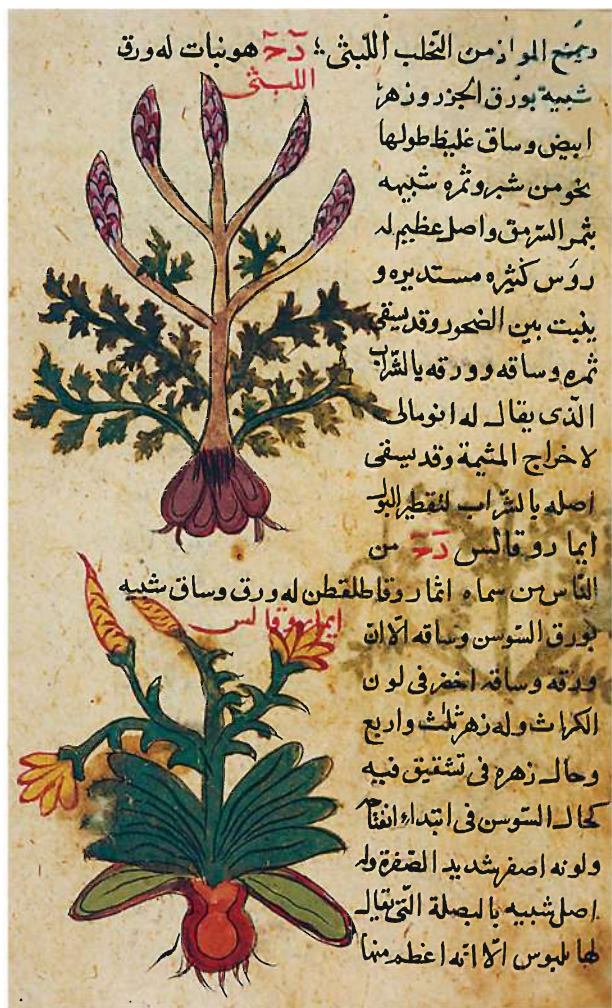 ويمنع المواد من التحلب اللبثى؛ دَحَ هو نبات له ورق
اللبثى
شبيه بورق الجزر وزهر
ابيض وساق غليظ طولها
نحو من شبر وثمره شبيهه
بثمر السرمق واصل عظيم له
روس كثيره مستديره و
ينبت بين الصخور وقد يسقى
ثمره وساقه وورقه بالشراب
الذى يقال له انومالى
لاخراج المشيمة وقد يسقى
اصله بالشراب لتقطير البول
ايماروقالس دَحَ من
الناس من سماه انماروقاطلقطن له ورق وساق شبيه
ايماروقالس
بورق السوسن وساقه الا ان
ورقه وساقه اخضر فى لون
الكراث وله زهر ثلث واربع
وحال زهره فى تشقيق فيه
كحال السوسن فى ابتداء انفتاح
ولونه اصفر شديد الصفرة وله
اصل شبيه بالبصلة التى يقال
لها بلبوس الا انه اعظم منها